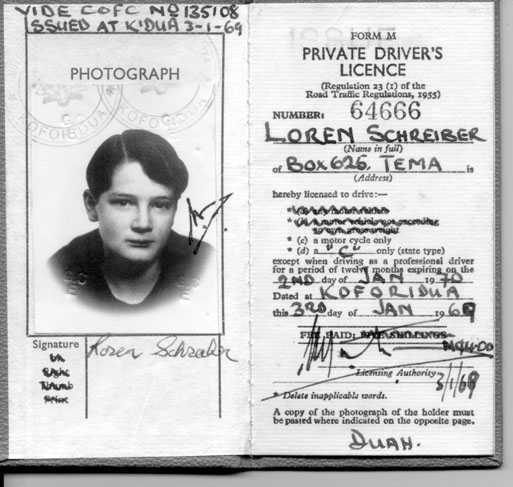 VIDE C OF C NO 135108
ISSUED AT K'DUA 3-1-69
PHOTOGRAPH
KOFORIDUA
Signature
Loren Schreiber
or
Thumb
Print
FORM M
PRIVATE DRIVER'S
LICENCE
(Regulation 23 (1) of the
Road Traffic Regulations, 1955)
NUMBER: 64666
LOREN SCHREIBER
(Name in full)
of BOX 626, TEMA is
(Address)
hereby licensed to drive:—
* (a) any motor vehicle
* (b) a motor vehicle not exceeding
* (c) a motor cycle only
* (d) a "C" only (state type)
except when driving as a professional driver
for a period of twelve months expiring on the
2ND day of JAN 1970
Dated at KOFORIDUA
this 3RD day of JAN 1969
FEE PAID:
Licensing Authority
3/1/69
* Delete inapplicable words.
A copy of the photograph of the holder must
be pasted where indicated on the opposite page.
DUAH.